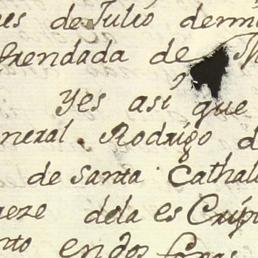 es de Julio de mi
frendada de
Yes asi que
neral. Rodrigo d
de Santa Cathal
dela es Crip
nto en dos foxas